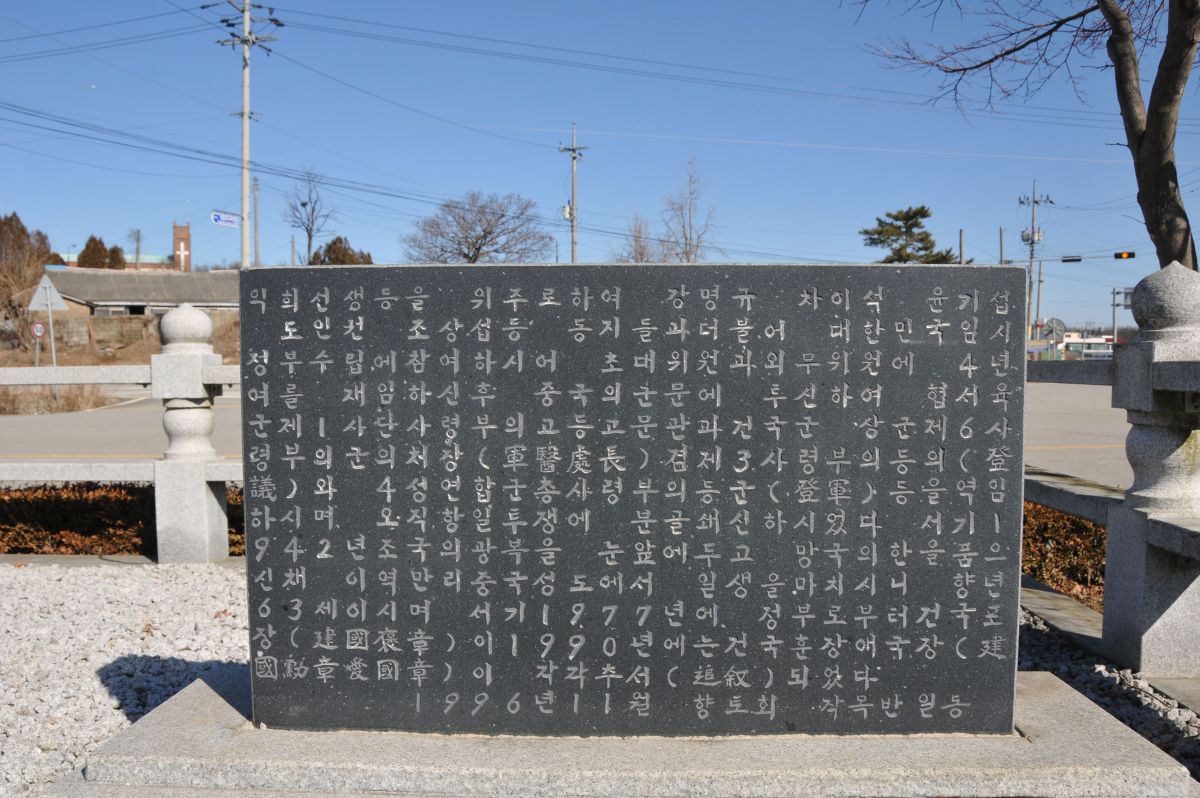 익희선생등을 위주로하여 강명규 차이석 윤기섭
도인전 조상섭등 동지들과더불어 대한민국임시
정부수립에참여하시어 초대위원과 외무위원에 4년
여를 재임하신후 중국의군문에투신하여 협서육
군제1사단사령부의고등고문관과 건국군 상군제6사
령부의 군의처장(軍醫處長)겸제3사령부의등의(登
議)와 4성연합군총사령부의등군(登軍)등을역임
하시며 오직항일투쟁에 분골쇄신하시었다 서기1
942년 조국의광복을 눈앞에두고 망국의한을품으
신채 이역만리 중국성도에서 일생을마치시니 향년
63세이시며 서기1977년에 정부로부터 건국포
장(建國褒章)이 1990년에는 건국훈장애국장(建
國勳章愛國章)이 각각추서(追叙)되었다
1996년11월 향토회 작목반일동